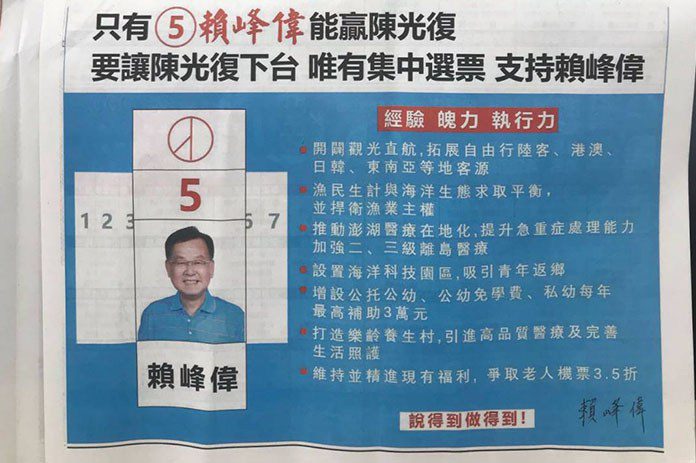 只有⑤賴峰偉能贏陳光復
要讓陳光復下台 唯有集中選票 支持賴峰偉
經驗 魄力 執行力
5
1 2 3 6 7
賴峰偉
開闢觀光直航,拓展自由行陸客、港澳、
日韓、東南亞等地客源
漁民生計與海洋生態求取平衡,
並捍衛漁業主權
推動澎湖醫療在地化,提升急重症處理能力
加強二、三級離島醫療
設置海洋科技園區,吸引青年返鄉
增設公托公幼、公幼免學費、私幼每年
最高補助3萬元
打造樂齡養生村,引進高品質醫療及完善
生活照護
維持並精進現有福利,爭取老人機票3.5折
說得到做得到!
賴峰偉